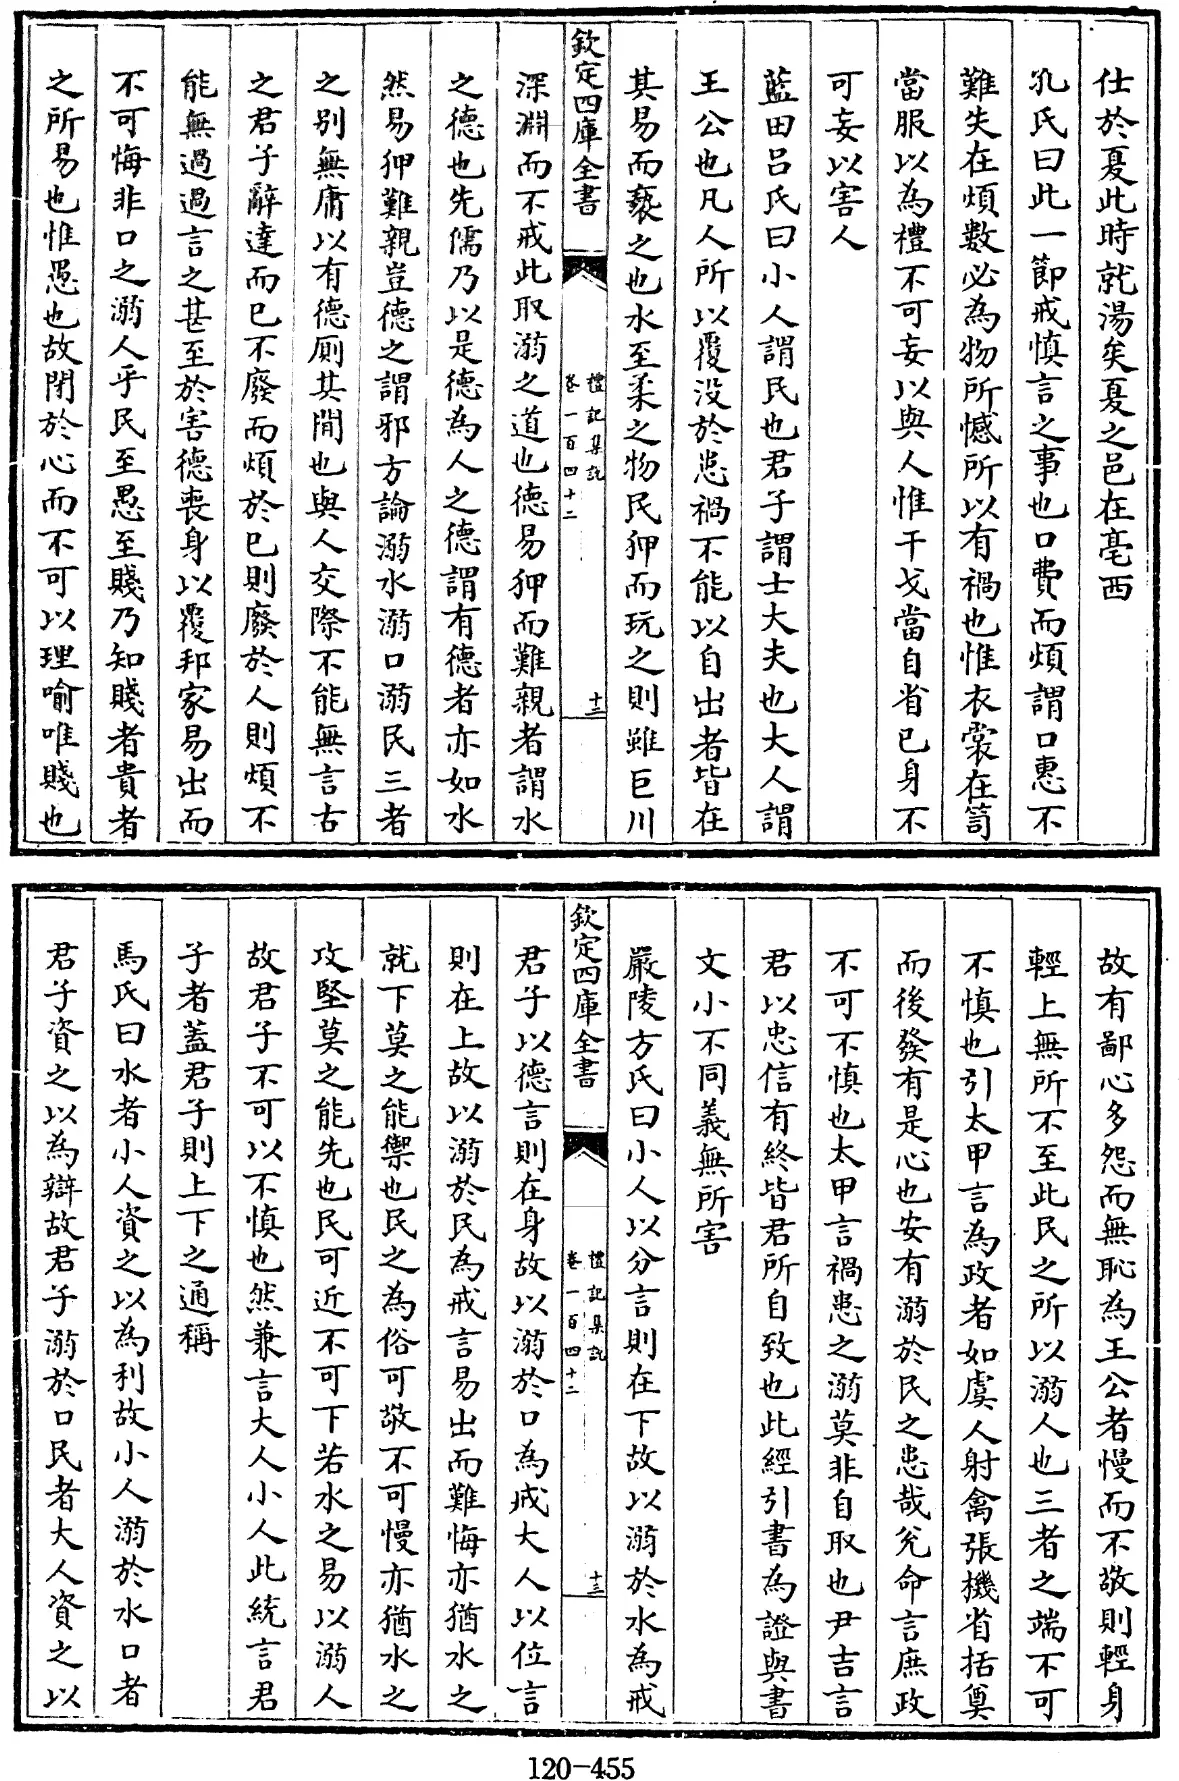 仕於夏此時就湯矣夏之邑在亳西
孔氏曰此一節戒慎言之事也口費而煩謂口惠不
難失在煩數必為物所憾所以有禍也惟衣裳在笥
當服以為禮不可妄以與人惟干戈當自省已身不
可妄以害人
藍田呂氏曰小人謂民也君子謂士大夫也大人謂
王公也凡人所以覆没於患禍不能以自出者皆在
其易而䙝之也水至柔之物民狎而玩之則雖巨川
欽定四庫全書
禮記集說
卷一百四十二
十二
深淵而不戒此取溺之道也德易狎而難親者謂水
之德也先儒乃以是德為人之德謂有德者亦如水
然易狎難親豈德之謂邪方論溺水溺口溺民三者
之别無庸以有德厠其間也與人交際不能無言古
之君子辭達而已不廢而煩於已則廢於人則煩不
能無過過言之甚至於害德喪身以覆邦家易出而
不可悔非口之溺人乎民至愚至賤乃知賤者貴者
之所易也惟愚也故閉於心而不可以理喻唯賤也
故有鄙心多怨而無恥為王公者慢而不敬則輕身
輕上無所不至此民之所以溺人也三者之端不可
不慎也引太甲言為政者如虞人射禽張機省括奠
而後發有是心也安有溺於民之患哉兊命言庶政
不可不慎也太甲言禍患之溺莫非自取也尹吉言
君以忠信有終皆君所自致也此經引書為證與書
文小不同義無所害
嚴陵方氏曰小人以分言則在下故以溺於水為戒
欽定四庫全書
禮記集說
卷一百四十二
十三
君子以德言則在身故以溺於口為戒大人以位言
則在上故以溺於民為戒言易出而難悔亦猶水之
就下莫之能禦也民之為俗可敬不可慢亦猶水之
攻堅莫之能先也民可近不可下若水之易以溺人
故君子不可以不慎也然兼言大人小人此統言君
子者蓋君子則上下之通稱
馬氏曰水者小人資之以為利故小人溺於水口者
君子資之以為辯故君子溺於口民者大人資之以
120-455